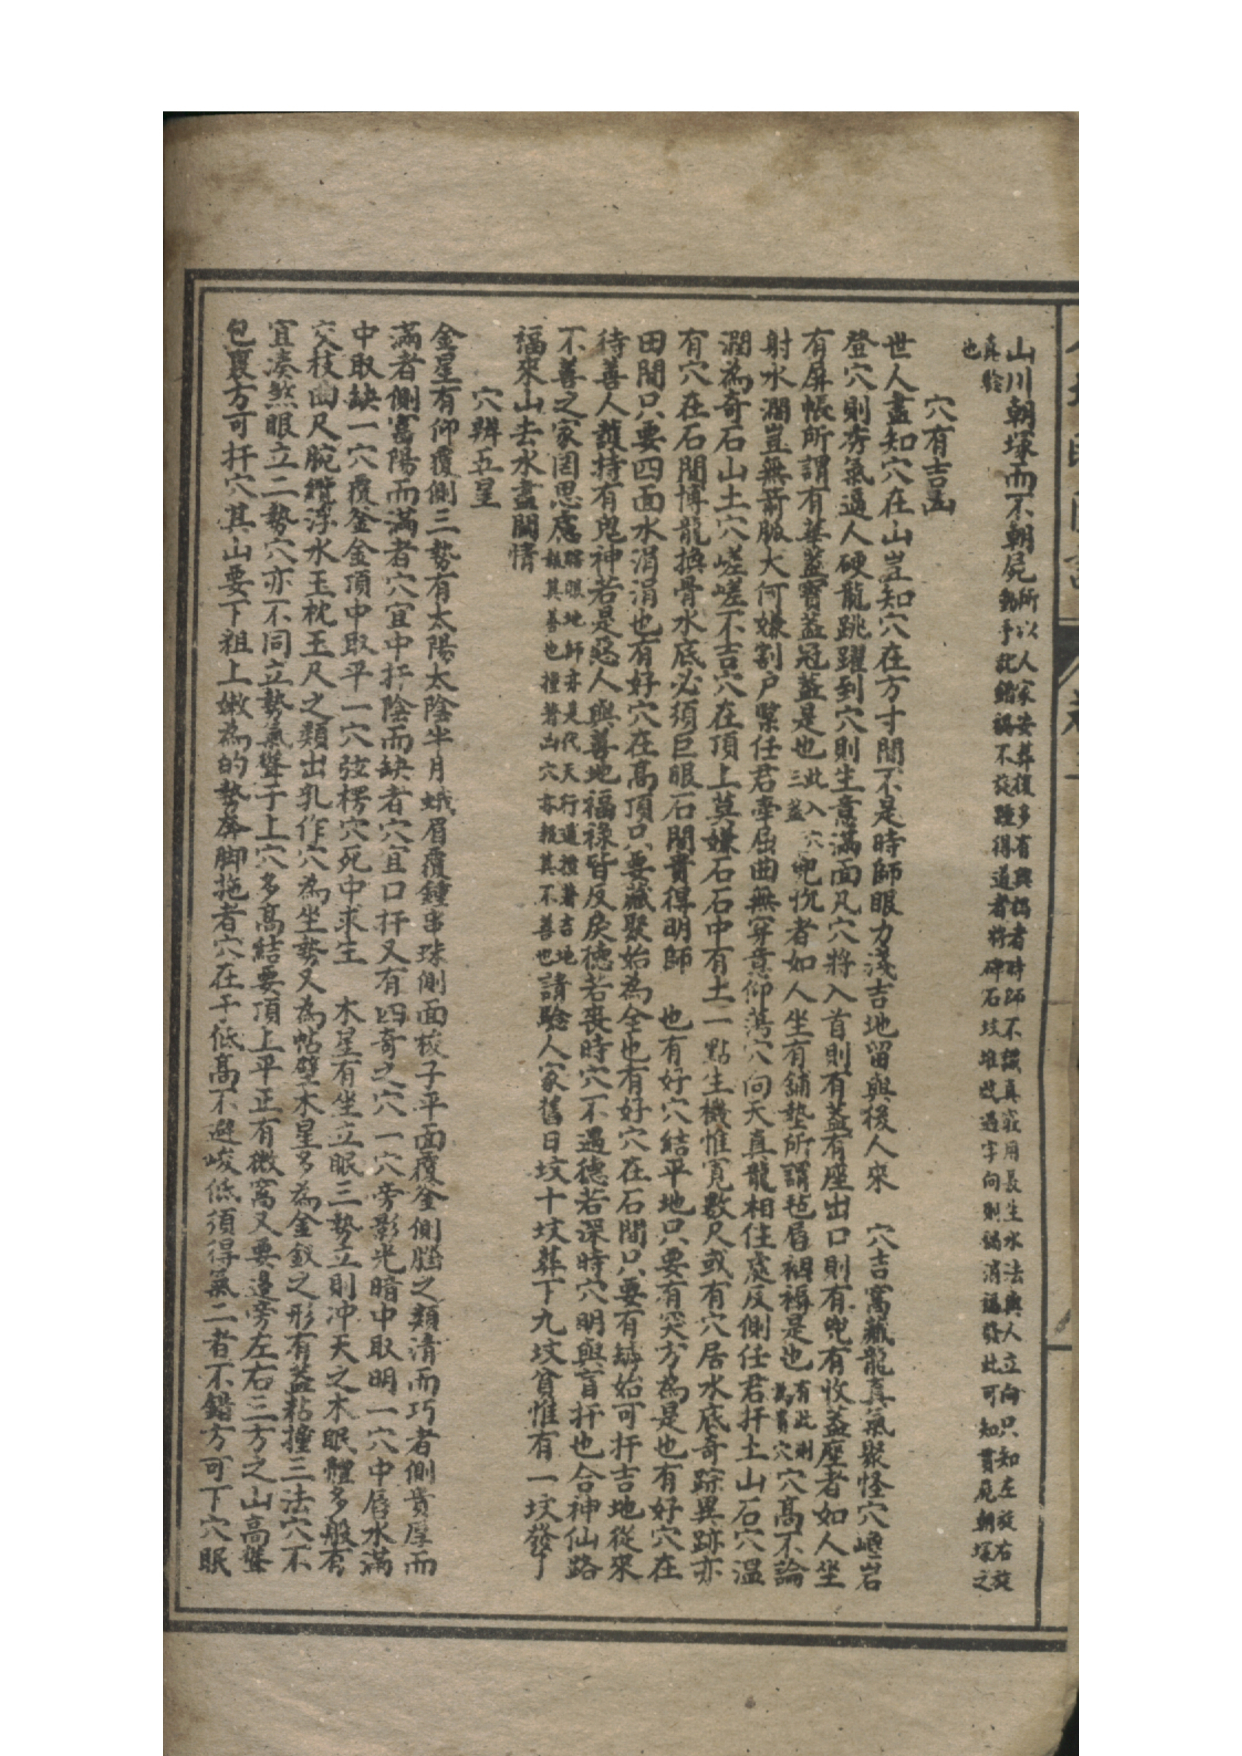 山川朝塚而不朝屍所以人家安葬後多有興禍者時師不識真竅用長生水法與人立向只知左旋右旋
動手就錯禍不旋踵得道者將碑石坟堆改過字向則禍消福發此可知貫屍朝塚之
真驗
也
穴有吉凶
世人盡知穴在山豈知穴在方寸間不是時師眼力淺吉地留與後人來　穴吉窩藏龍真氣聚怪穴巉岩
登穴則旁氣逼人硬龍跳躍到穴則生意滿面凡穴將入首則有蓋有座出口則有兜有收蓋座者如人坐
有屏帳所謂有華蓋寶蓋冠蓋是也此入穴三蓋兜收者如人坐有鋪墊所謂毡唇裀褥是也有此則為真穴穴高不論
射水澗豈無箭脈大何嫌割户緊任君牽屈曲無穿意仰蕩穴向天真龍相住處反側任君扞土山石穴溫
潤為奇石山土穴嵯嵯不吉穴在頂上莫嫌石石中有土一點生機惟寬數尺或有穴居水底奇踪異跡亦
有穴在石間博龍換骨水底必須巨眼石間貴得明師　也有好穴結平地只要有突方為是也有好穴在
田間只要四面水涓涓也有好穴在高頂只要藏聚始為全也有好穴在石間只要有罅始可扞吉地從來
待善人護持有鬼神若是惡人與善地福祿皆反戾德若喪時穴不遇德若深時穴明與盲扞也合神仙路
不善之家罔思慮瞎眼地師亦是代天行道撞著吉地報其善也撞著凶穴亦報其不善也請驗人家舊日坟十坟葬下九坟貧惟有一坟發
福來山去水盡關情
穴辨五星
金星有仰覆側三勢有太陽太陰半月蛾眉覆鍾串珠側面梭子平面覆釜側腦之類清而巧者側貴厚而
滿者側富陽而滿者穴宜中扞陰而缺者穴宜口扞又有四奇之穴一穴旁影光暗中取明一穴中唇水滿
中取缺一穴覆釜金頂中取平一穴弦楞穴死中求生　木星有坐立眠三勢立則冲天之木眠體多般有
交枝曲尺腕纜浮水玉枕王尺之類出乳作穴為坐勢又為帖壁木星多為金釵之形有蓋粘撞三法穴不
宜湊煞眼立二勢穴亦不同立勢氣聳于上穴多高結要頂上平正有微窩又要邊旁左右三方之山高聳
包裹方可扞穴其山要下祖上嫩為的勢奔脚拖者穴在于低高不避峻低須得氣二者不錯方可下穴眠